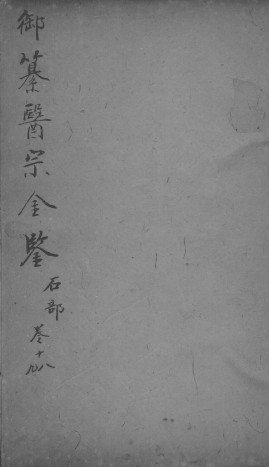 御纂醫宗金鑒
石部
卷十八